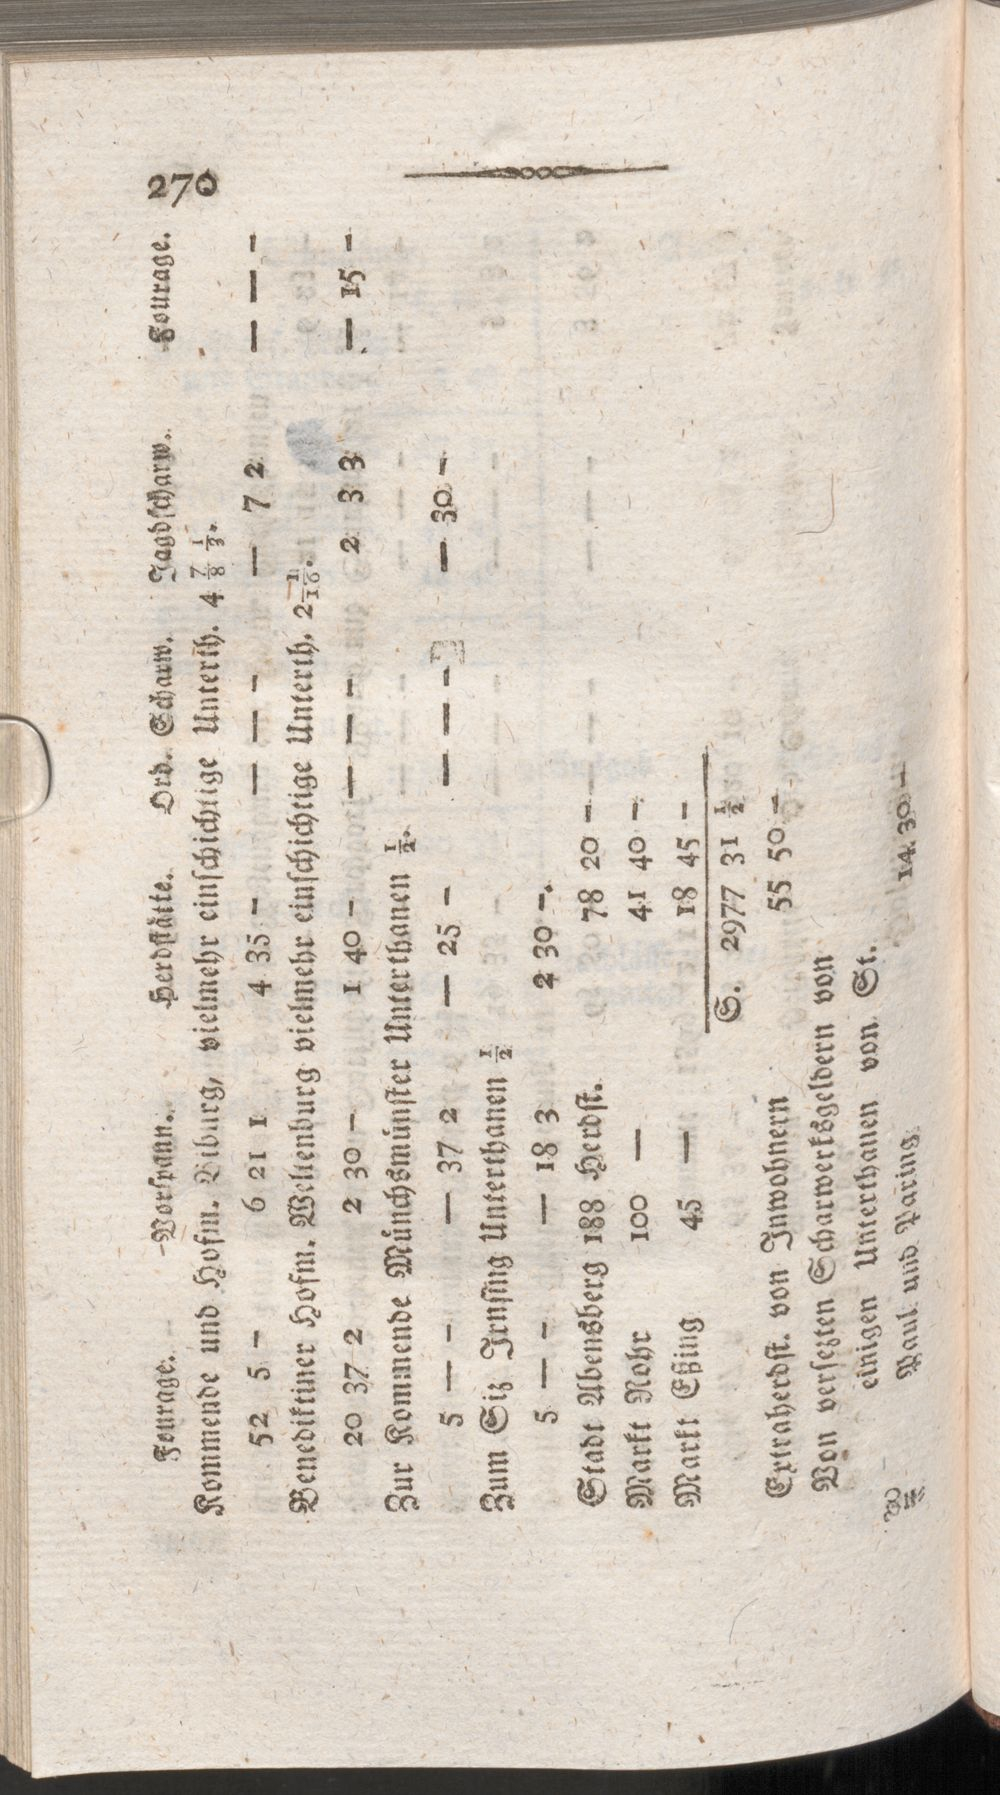 270
Fourage. Vorspann. Herdstätte. Ord. Scharw. Jagdscharw. Fourage.
Kommende und Hofm. Biburg, vielmehr einschichtige Unterth. 4 7/8 1/3.
52 5 — 6 21 1 4 35 — — — — — 7 2 — — —
Benediktiner Hofm. Weltenburg vielmehr einschichtige Unterth. 2 1/16.
20 37 2 2 30 — 1 40 — — — — 2 3 3 — 15 —
Zur Kommende Münchsmünster Unterthanen 1/2.
5 — — — 37 2 — 25 — — — — — 30 —
Zum Siz Irnsing Unterthanen 1/2
5 — — — 18 3 2 30 —.
Stadt Abensberg 188 Herdst. 78 20 —
Markt Rohr 100 — 41 40 —
Markt Eßing 45 — 18 45 —
S. 2977 31 1/2
Extraherdst. von Inwohnern 55 50 —
Von versezten Scharwerksgeldern von
einigen Unterthanen von St.
Paul und Paring 14. 30. —